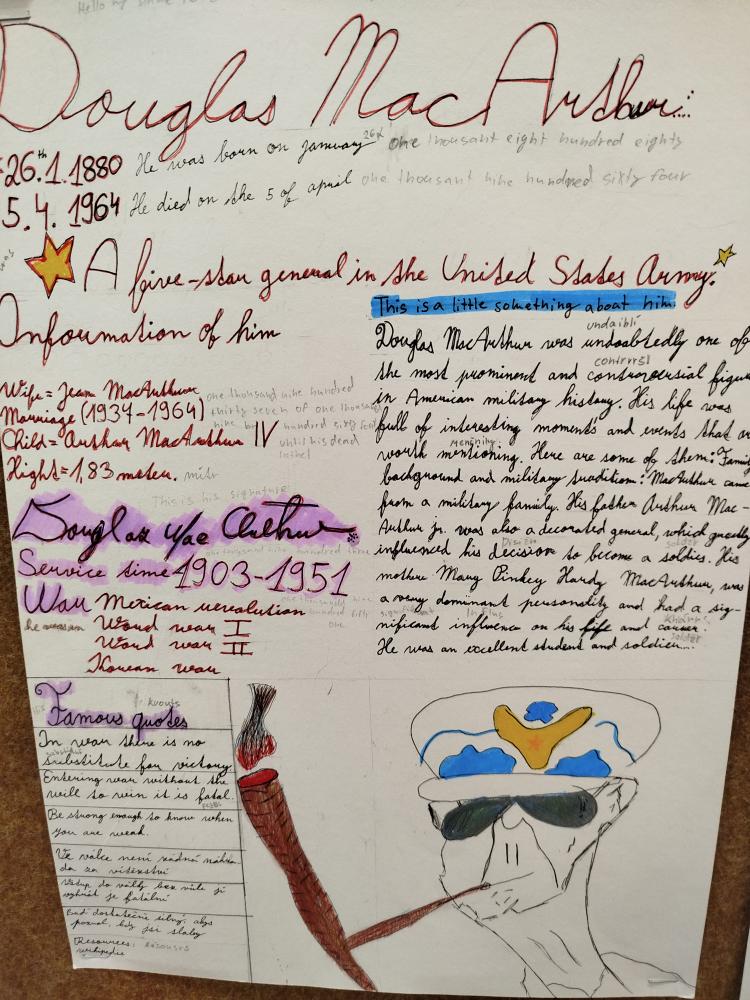 Douglas MacArthur...
26.th 1.1880 He was born on january 26th one thousand eight hundred eighty
5.4. 1964 He died on the 5 of april one thousand nine hundred sixty four
A five-star general in the United States Army.
Information of him
Wife= Jean MacArthur
Marriage (1937-1964)
one thousand nine hundred
thirty seven of one thousand
Child= Arthur MacArthur IV
until his dead
Hight= 1,83 meter. mítr
This is his signature:
Douglas MacArthur
Service time 1903-1951
War Mexican revolution
he was in Word war I
Word war II
Korean war
This is a little something about him.
undaibli
Douglas MacArthur was undoubtedly one of
the most prominent and controversial figur
in American military history. His life was
full of interesting moments and events that ar
worth mentioning. Here are some of them: Famil
background and military tradition: MacArthur came
from a military family. His father Arthur Mac-
Arthur jr. was also a decorated general, which greatly
influenced his decision to become a soldies. His
mother Mary Pinkey Hardy MacArthur, was
a very dominant personality and had a sig-
nificant influence on his life and career.
He was an excellent student and soldier...
Famous quotes
In war there is no
substitute for victory
Entering war without the
will to win it is fatal.
Be strong enough to know when
you are weak.
Ve válce není žádná náhra
da za vítězství
Vstup do války bez vůle ji
vyhrát je fatální
Buď dostatečně silný, abys
poznal, kdy jsi slabý
Resources:
wikipedie